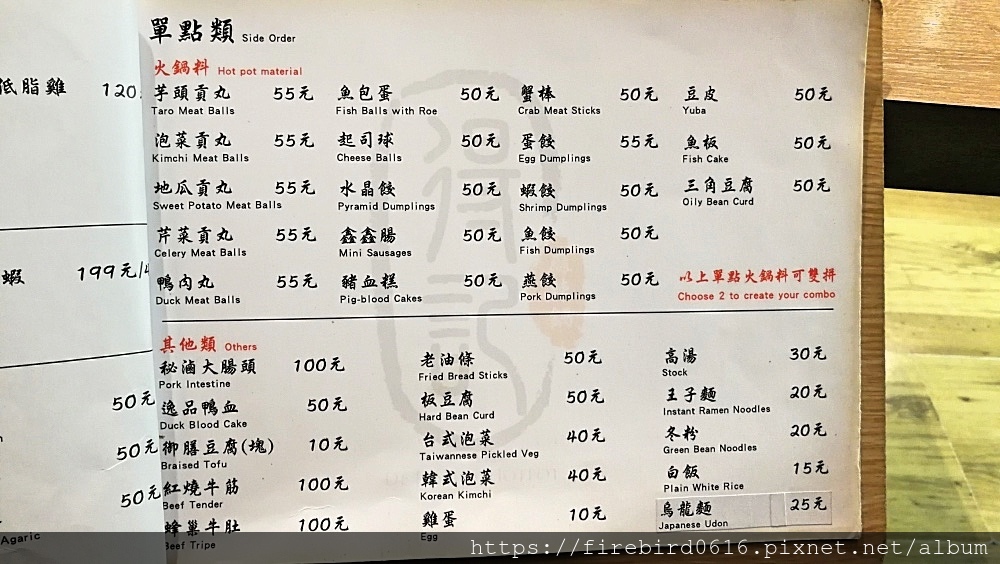 低脂雞 120
蝦 199元/4
50元
50元
50元
Agaric
單點類 Side Order
火鍋料 Hot pot material
芋頭貢丸 55元
Taro Meat Balls
泡菜貢丸 55元
Kimchi Meat Balls
地瓜貢丸 55元
Sweet Potato Meat Balls
芹菜貢丸 55元
Celery Meat Balls
鴨肉丸 55元
Duck Meat Balls
魚包蛋 50元
Fish Balls with Roe
起司球 50元
Cheese Balls
水晶餃 50元
Pyramid Dumplings
鑫鑫腸 50元
Mini Sausages
豬血糕 50元
Pig-blood Cakes
蟹棒 50元
Crab Meat Sticks
蛋餃 55元
Egg Dumplings
蝦餃 50元
Shrimp Dumplings
魚餃 50元
Fish Dumplings
燕餃 50元
Pork Dumplings
豆皮 50元
Yuba
魚板 50元
Fish Cake
三角豆腐 50元
Oily Bean Curd
以上單點火鍋料可雙拼
Choose 2 to create your combo
其他類 Others
秘滷大腸頭 100元
Pork Intestine
逸品鴨血 50元
Duck Blood Cake
御膳豆腐(塊) 10元
Braised Tofu
紅燒牛筋 100元
Beef Tender
蜂巢牛肚 100元
Beef Tripe
老油條 50元
Fried Bread Sticks
板豆腐 50元
Hard Bean Curd
台式泡菜 40元
Taiwannese Pickled Veg
韓式泡菜 40元
Korean Kimchi
雞蛋 10元
Egg
高湯 30元
Stock
王子麵 20元
Instant Ramen Noodles
冬粉 20元
Green Bean Noodles
白飯 15元
Plain White Rice
烏龍麵 25元
Japanese Udon
https://firebird0616.pixnet.net/album